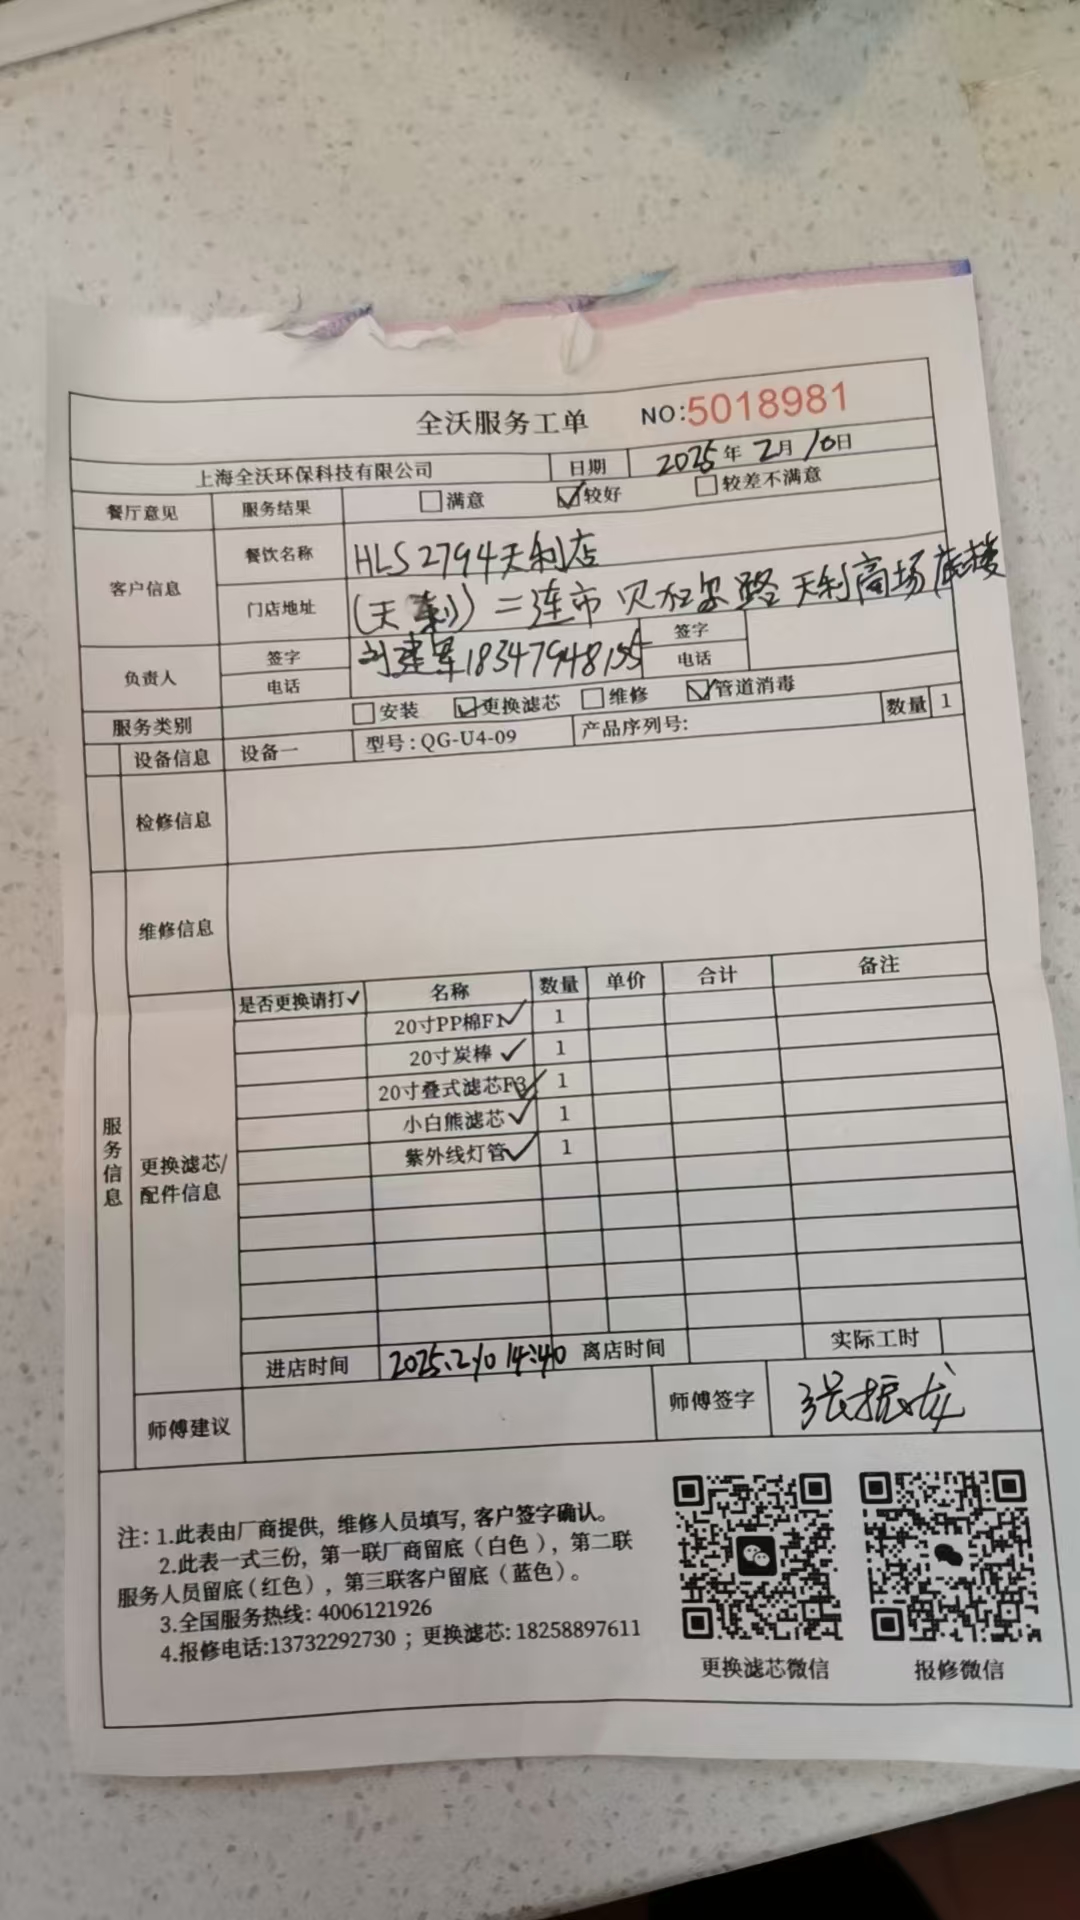 全沃服务工单 NO:5018981
上海全沃环保科技有限公司 日期 2025年2月10日
餐厅意见 服务结果 满意 较好 较差不满意
客户信息 餐饮名称 HLS2794天利店
门店地址 (天利) 二连市 路 天利商场底楼
负责人 签字 刘建军18347948155 签字
电话 电话
服务类别 安装 更换滤芯 维修 管道消毒
设备信息 设备一 型号:QG-U4-09 产品序列号: 数量 1
检修信息
维修信息
服务信息
更换滤芯/配件信息
是否更换请打✓ 名称 数量 单价 合计 备注
20寸PP棉F1 ✓ 1
20寸炭棒 ✓ 1
20寸叠式滤芯F3 ✓ 1
小白熊滤芯 ✓ 1
紫外线灯管 ✓ 1
进店时间 2025.2.10 14:40 离店时间 实际工时
师傅建议 师傅签字 张振龙
注: 1.此表由厂商提供，维修人员填写，客户签字确认。
2.此表一式三份，第一联厂商留底（白色），第二联
服务人员留底（红色），第三联客户留底（蓝色）。
3.全国服务热线: 4006121926
4.报修电话:13732292730 ；更换滤芯: 18258897611
更换滤芯微信 报修微信